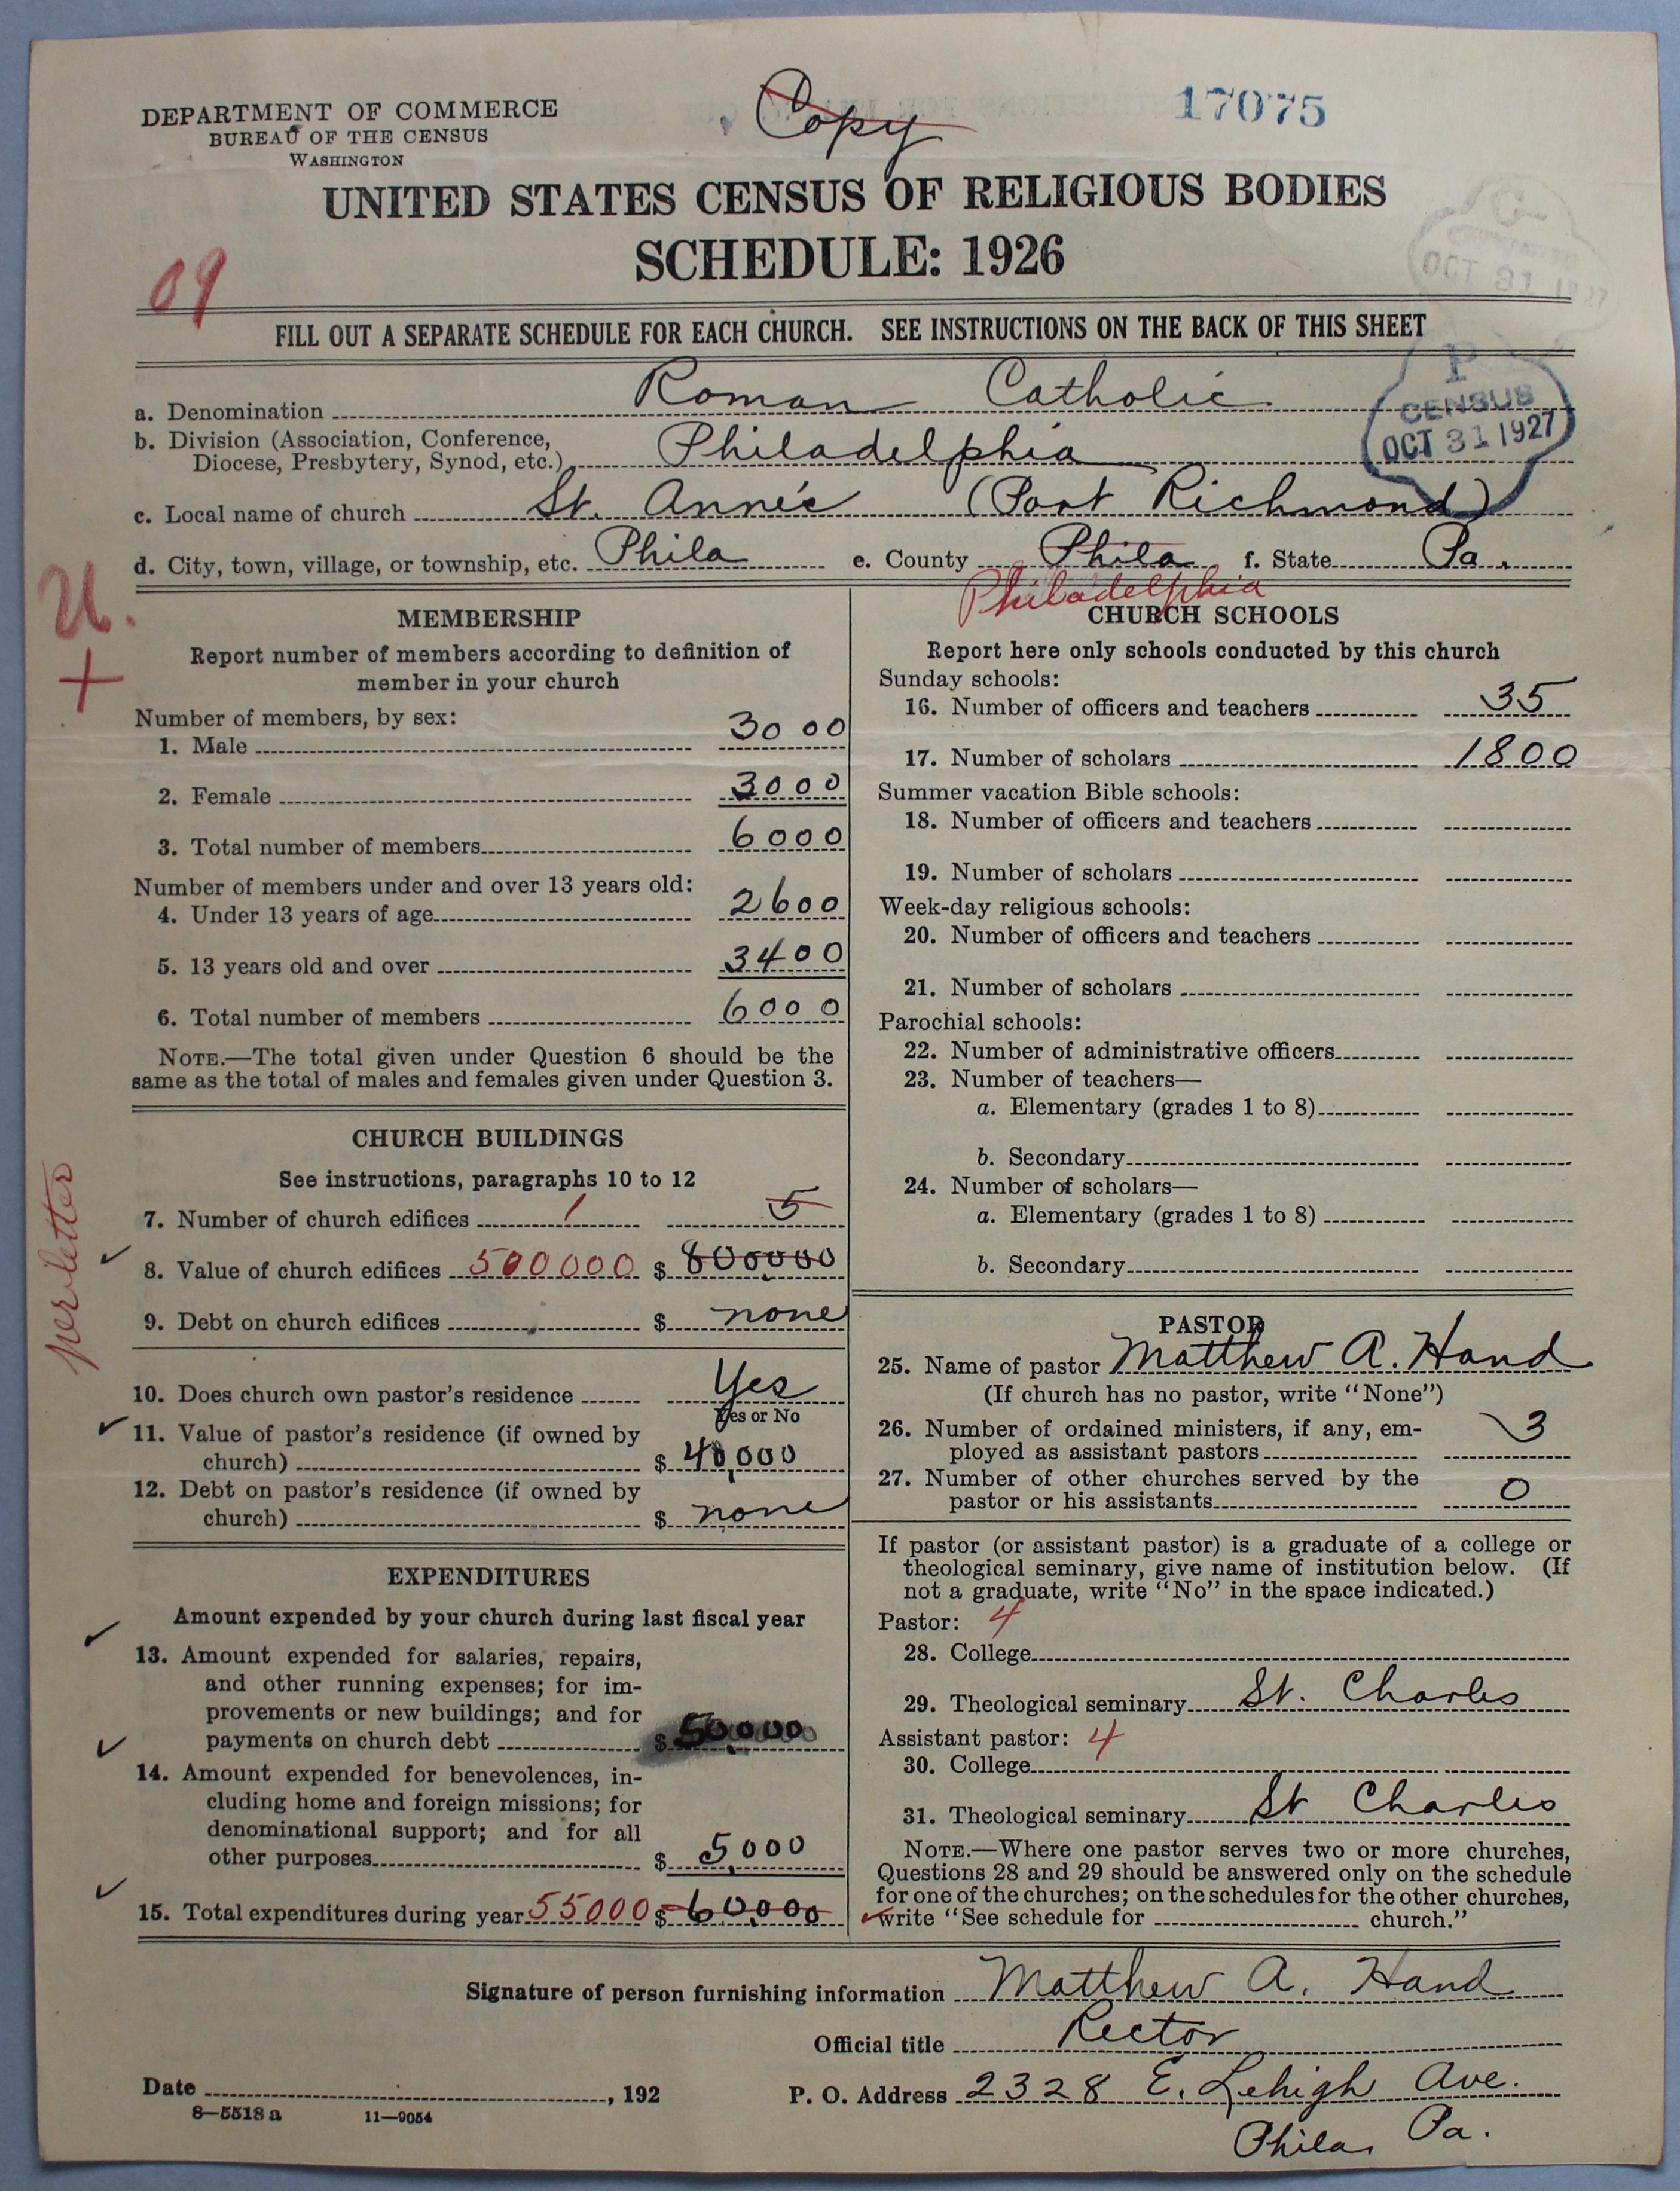 DEPARTMENT OF COMMERCE
BUREAU OF THE CENSUS
WASHINGTON
Copy
17075
UNITED STATES CENSUS OF RELIGIOUS BODIES
SCHEDULE: 1926
09
OCT 31 1927
FILL OUT A SEPARATE SCHEDULE FOR EACH CHURCH. SEE INSTRUCTIONS ON THE BACK OF THIS SHEET
P
CENSUS
OCT 31 1927
a. Denomination Roman Catholic
b. Division (Association, Conference,
Diocese, Presbytery, Synod, etc.) Philadelphia
c. Local name of church St. Anne's (Port Richmond)
d. City, town, village, or township, etc. Phila e. County Phila f. State Pa.
Philadelphia
U.
+
MEMBERSHIP
Report number of members according to definition of
member in your church
Number of members, by sex:
1. Male 3000
2. Female 3000
3. Total number of members 6000
Number of members under and over 13 years old:
4. Under 13 years of age 2600
5. 13 years old and over 3400
6. Total number of members 6000
NOTE.—The total given under Question 6 should be the
same as the total of males and females given under Question 3.
CHURCH BUILDINGS
See instructions, paragraphs 10 to 12
7. Number of church edifices 1 5
8. Value of church edifices 500000 $ 800,000
9. Debt on church edifices $ none
per letter
10. Does church own pastor's residence Yes
Yes or No
11. Value of pastor's residence (if owned by
church) $ 40,000
12. Debt on pastor's residence (if owned by
church) $ none
EXPENDITURES
Amount expended by your church during last fiscal year
13. Amount expended for salaries, repairs,
and other running expenses; for im-
provements or new buildings; and for
payments on church debt $ 50,000
14. Amount expended for benevolences, in-
cluding home and foreign missions; for
denominational support; and for all
other purposes $ 5,000
15. Total expenditures during year 55000 $ 60,000
CHURCH SCHOOLS
Report here only schools conducted by this church
Sunday schools:
16. Number of officers and teachers 35
17. Number of scholars 1800
Summer vacation Bible schools:
18. Number of officers and teachers
19. Number of scholars
Week-day religious schools:
20. Number of officers and teachers
21. Number of scholars
Parochial schools:
22. Number of administrative officers
23. Number of teachers—
a. Elementary (grades 1 to 8)
b. Secondary
24. Number of scholars—
a. Elementary (grades 1 to 8)
b. Secondary
PASTOR
25. Name of pastor Matthew A. Hand
(If church has no pastor, write "None")
26. Number of ordained ministers, if any, em-
ployed as assistant pastors 3
27. Number of other churches served by the
pastor or his assistants 0
If pastor (or assistant pastor) is a graduate of a college or
theological seminary, give name of institution below. (If
not a graduate, write "No" in the space indicated.)
Pastor: 4
28. College
29. Theological seminary St. Charles
Assistant pastor: 4
30. College
31. Theological seminary St Charles
NOTE.—Where one pastor serves two or more churches,
Questions 28 and 29 should be answered only on the schedule
for one of the churches; on the schedules for the other churches,
write "See schedule for church."
Signature of person furnishing information Matthew A. Hand
Official title Rector
Date , 192 P. O. Address 2328 E. Lehigh Ave.
8—5518 a 11—9054
Phila, Pa.